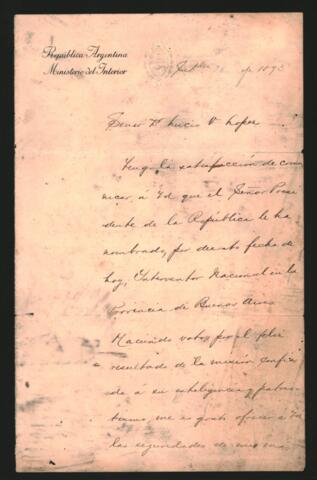 República Argentina
Ministerio del Interior
de 1893
Señor Dr Lucio V Lopez
Tengo la satisfacción de comu
nicar, á Vd que el Señor Presi
dente de la República le ha
nombrado, por decreto fecha de
hoy, Interventor Nacional en la
Provincia de Buenos Aires
Haciendo votos por el feliz
resultado de la mision confia
da á su inteligencia y patrio
tismo, me es grato ofrecer á Vd
las seguridades de mi mas